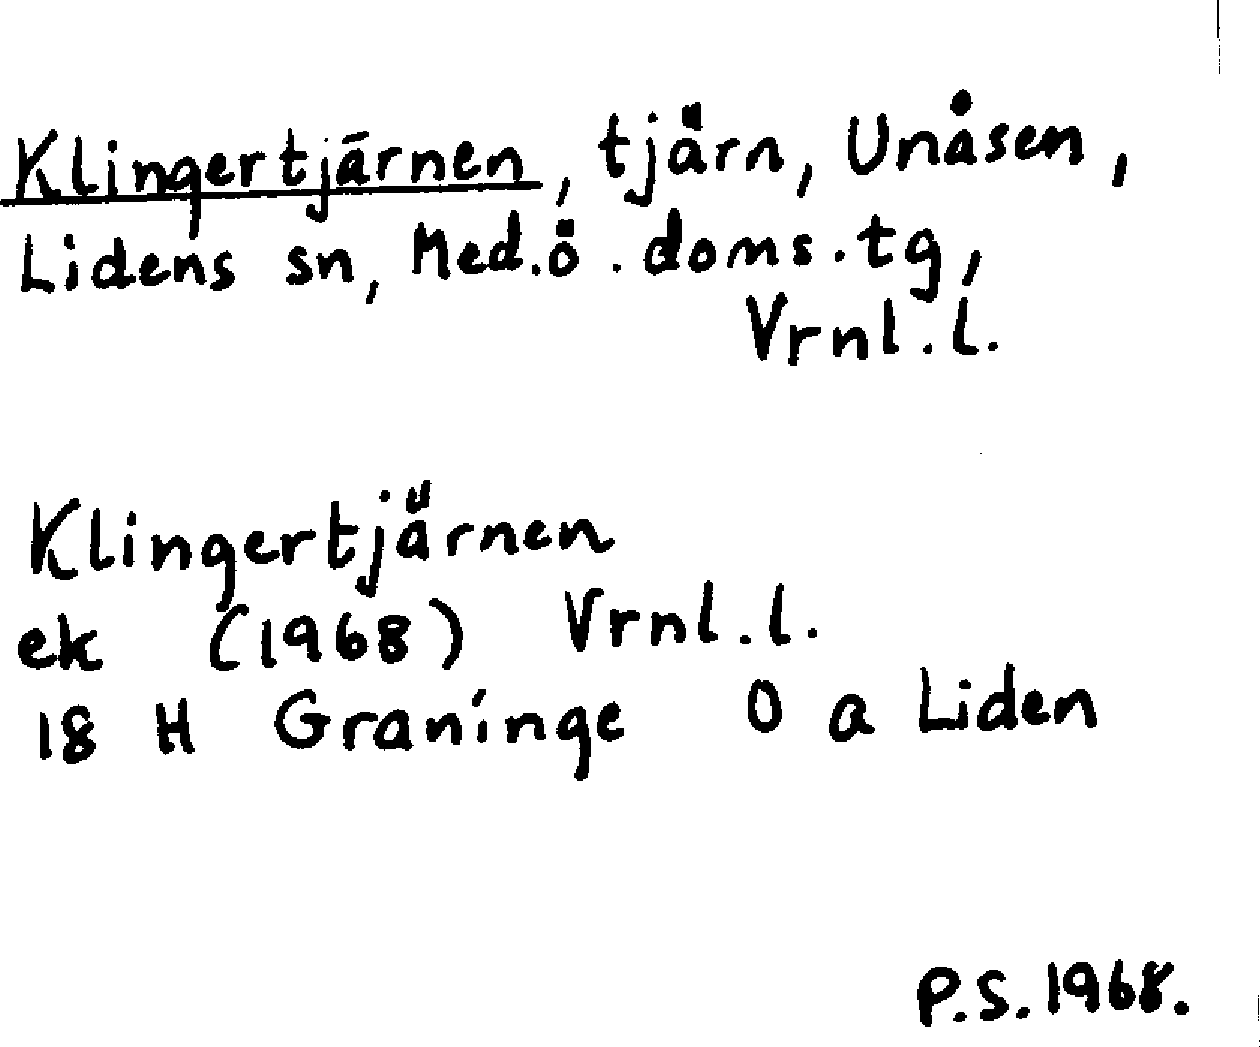 Klingertjärnen, tjärn, Unåsen,
Lidens sn, Med.ö. doms.tg,
Vrnl.l.
Klingertjärnen
ek (1968) Vrnl.l.
18 H Graninge O a Liden
P.S. 1968.